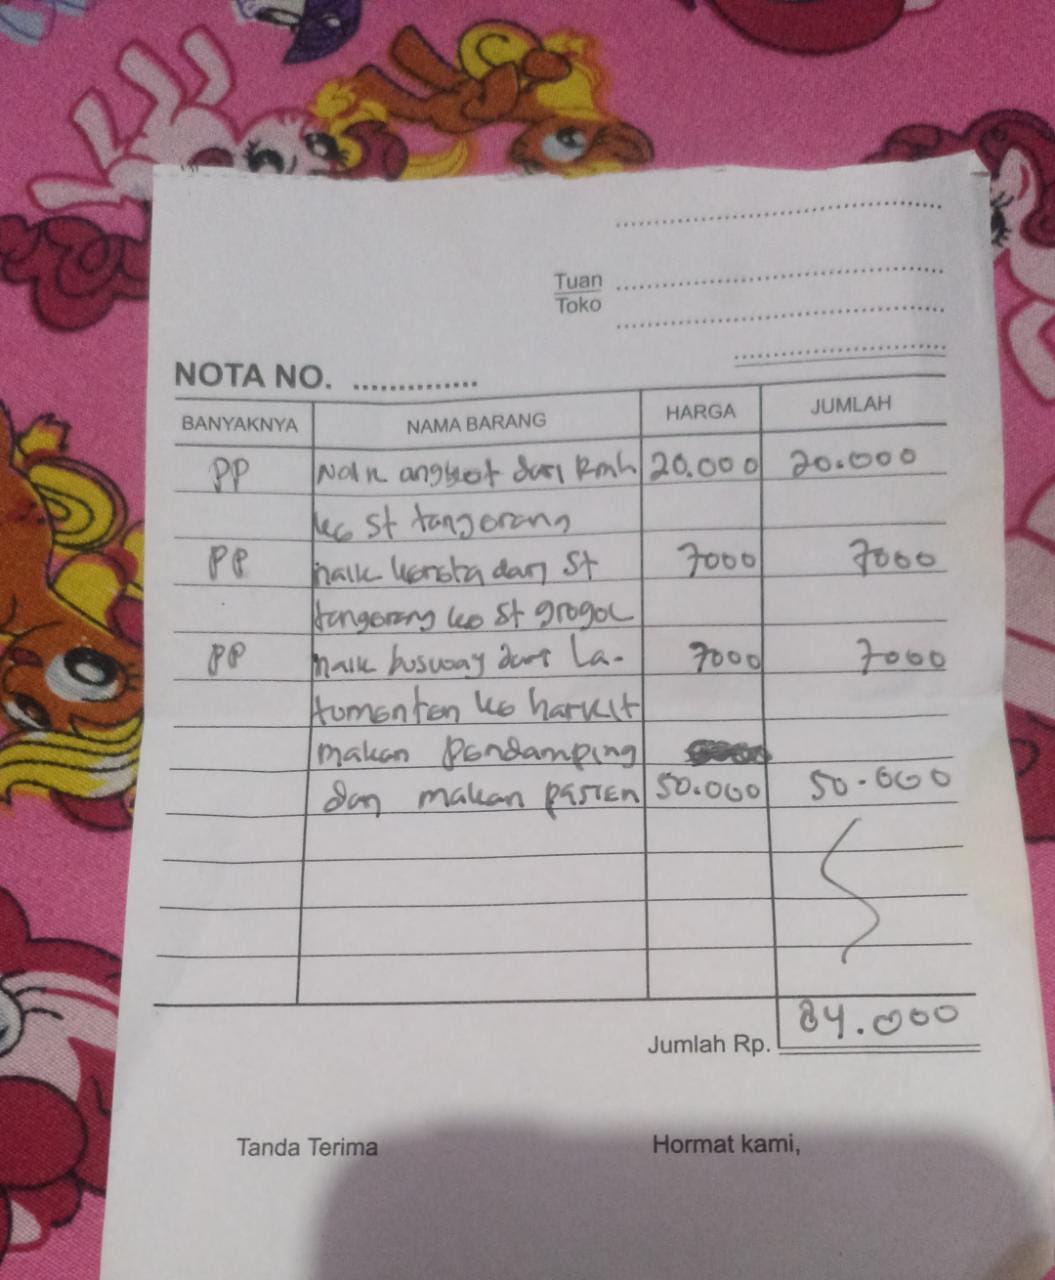 Tuan
Toko
NOTA NO. ..............
BANYAKNYA NAMA BARANG HARGA JUMLAH
PP Naik angkot dari Rmh 20.000 20.000
ke st tangerang
PP naik kereta dari St 7000 7000
tangerang ke st grogol
PP naik busway dari La- 7000 7000
tumenten ke harkit
makan pendamping
dan makan pasien 50.000 50.000
Jumlah Rp. 84.000
Tanda Terima Hormat kami,